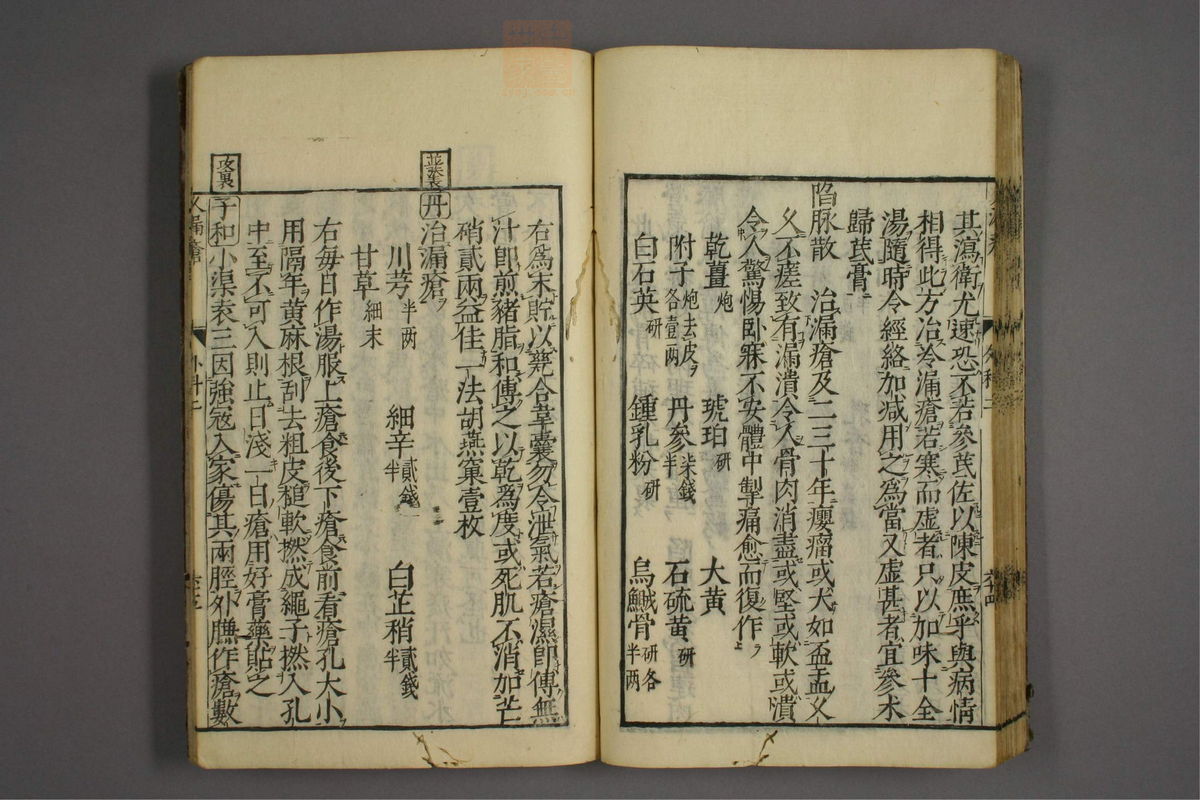 其瀉衛尤速恐不若參芪佐以陳皮庶乎與病情
相得此方冶冷漏瘡若寒而虛者只以加味十全
湯隨時令經絡加减用之爲當又虛甚者宜參朮
歸芪膏
陷脉散　治漏瘡及二三十年癭瘤或大如盃盂久
久不瘥致有漏潰令人骨肉消盡或堅或軟或潰
令人驚惕卧寐不安體中掣痛愈而復作
乾薑炮　琥珀研　大黄
附子炮去皮各壹两　丹參柒錢半　石硫黄研
白石英研　鍾乳粉研　烏鰂骨研各半两
右爲末貯以甕合韋囊勿令泄氣若瘡濕即傅無
汁即煎豬脂和傅之以乾爲度或死肌不消加芒
硝貳兩益佳一法胡燕窠壹枚
丹治漏瘡
川芎半两　細辛貳錢半　白芷稍貳錢半
甘草細末
右每日作湯服上瘡食後下瘡食前看瘡孔大小
用隔年黄麻根刮去粗皮搥軟撚成繩子撚入孔
中至不可入則止日淺一日瘡用好膏藥貼之
攻裏
子和小渠袁三因強寇入家傷其兩脛外臁作瘡數
久漏瘡　外科二